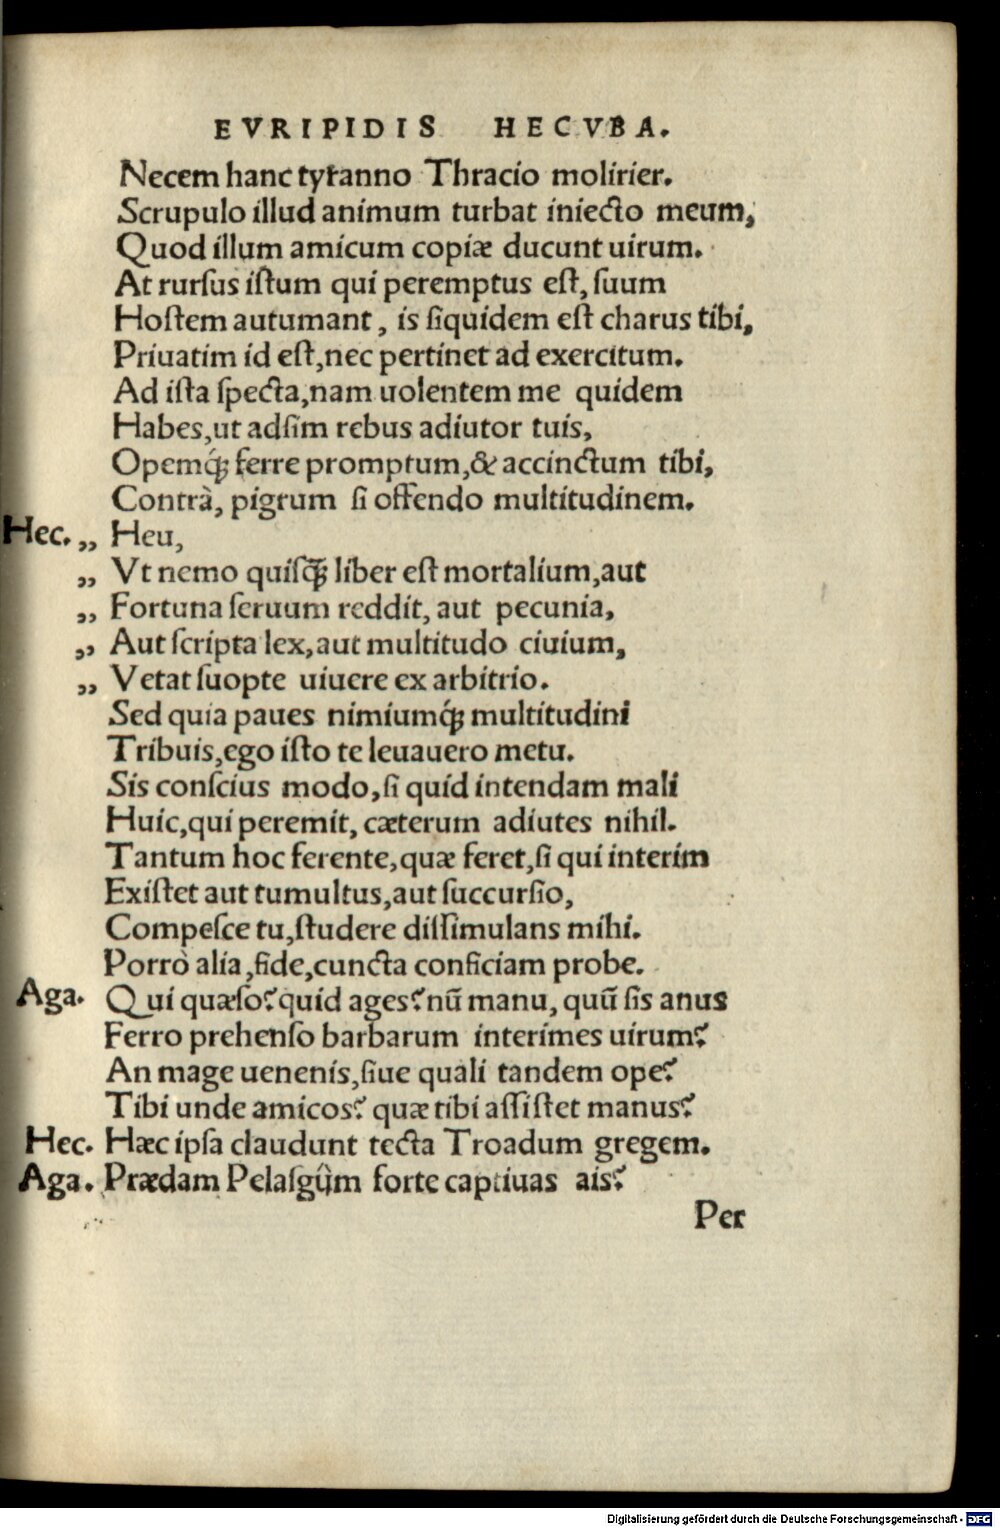 EVRIPIDIS HECVBA.
Necem hanc tyranno Thracio molirier.
Scrupulo illud animum turbat iniecto meum,
Quod illum amicum copiæ ducunt uirum.
At rursus istum qui peremptus est, suum
Hostem autumant, is siquidem est charus tibi,
Priuatim id est, nec pertinet ad exercitum.
Ad ista specta, nam uolentem me quidem
Habes, ut adsim rebus adiutor tuis,
Opemq́ꝫ ferre promptum, & accinctum tibi,
Contrà, pigrum si offendo multitudinem.
Hec. „ Heu,
„ Vt nemo quisq̃ꝫ liber est mortalium, aut
„ Fortuna seruum reddit, aut pecunia,
„ Aut scripta lex, aut multitudo ciuium,
„ Vetat suopte uiuere ex arbitrio.
Sed quia paues nimiumq́ꝫ multitudini
Tribuis, ego isto te leuauero metu.
Sis conscius modo, si quid intendam mali
Huic, qui peremit, cæterum adiutes nihil.
Tantum hoc ferente, quæ feret, si qui interim
Existet aut tumultus, aut succursio,
Compesce tu, studere dissimulans mihi.
Porrò alia, fide, cuncta conficiam probe.
Aga. Qui quæso? quid ages? nū manu, quū sis anus
Ferro prehenso barbarum interimes uirum?
An mage uenenis, siue quali tandem ope?
Tibi unde amicos? quæ tibi assistet manus?
Hec. Hæc ipsa claudunt tecta Troadum gregem.
Aga. Prædam Pelasgûm forte captiuas ais?
Per
Digitalisierung gefördert durch die Deutsche Forschungsgemeinschaft - DFG